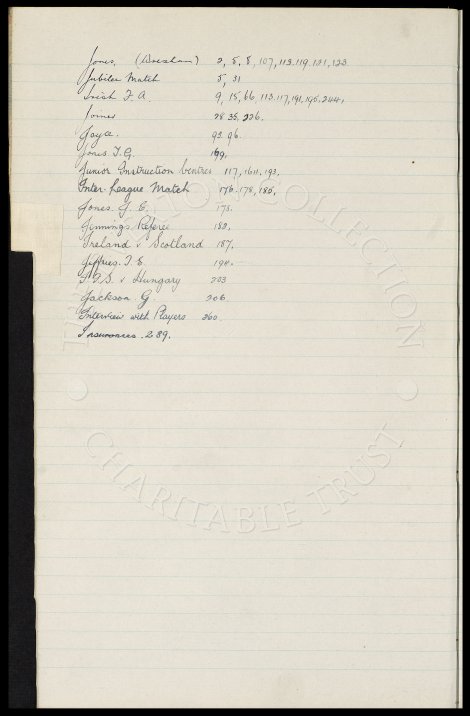 Jones. (Wrexham) 2, 5, 8, 107, 113. 119. 121, 123.
Jubilee Match 5, 31
Irish F.A. 9, 15, 66, 113. 117, 191, 195, 244,
Joiner 28 35, 226.
Joyce. 93. 96.
Jones T.G. 109,
Junior Instruction Centres 117, 164, 193,
Inter-League Match 176, 178, 185,
Jones J. E. 173.
Jennings Referee 182,
Ireland v Scotland 187,
Jeffries. T. S. 194.
v Hungary 203
Jackson G 206
Interview with Players 260.
Insurances. 289.
COLLECTION
CHARITABLE TRUST